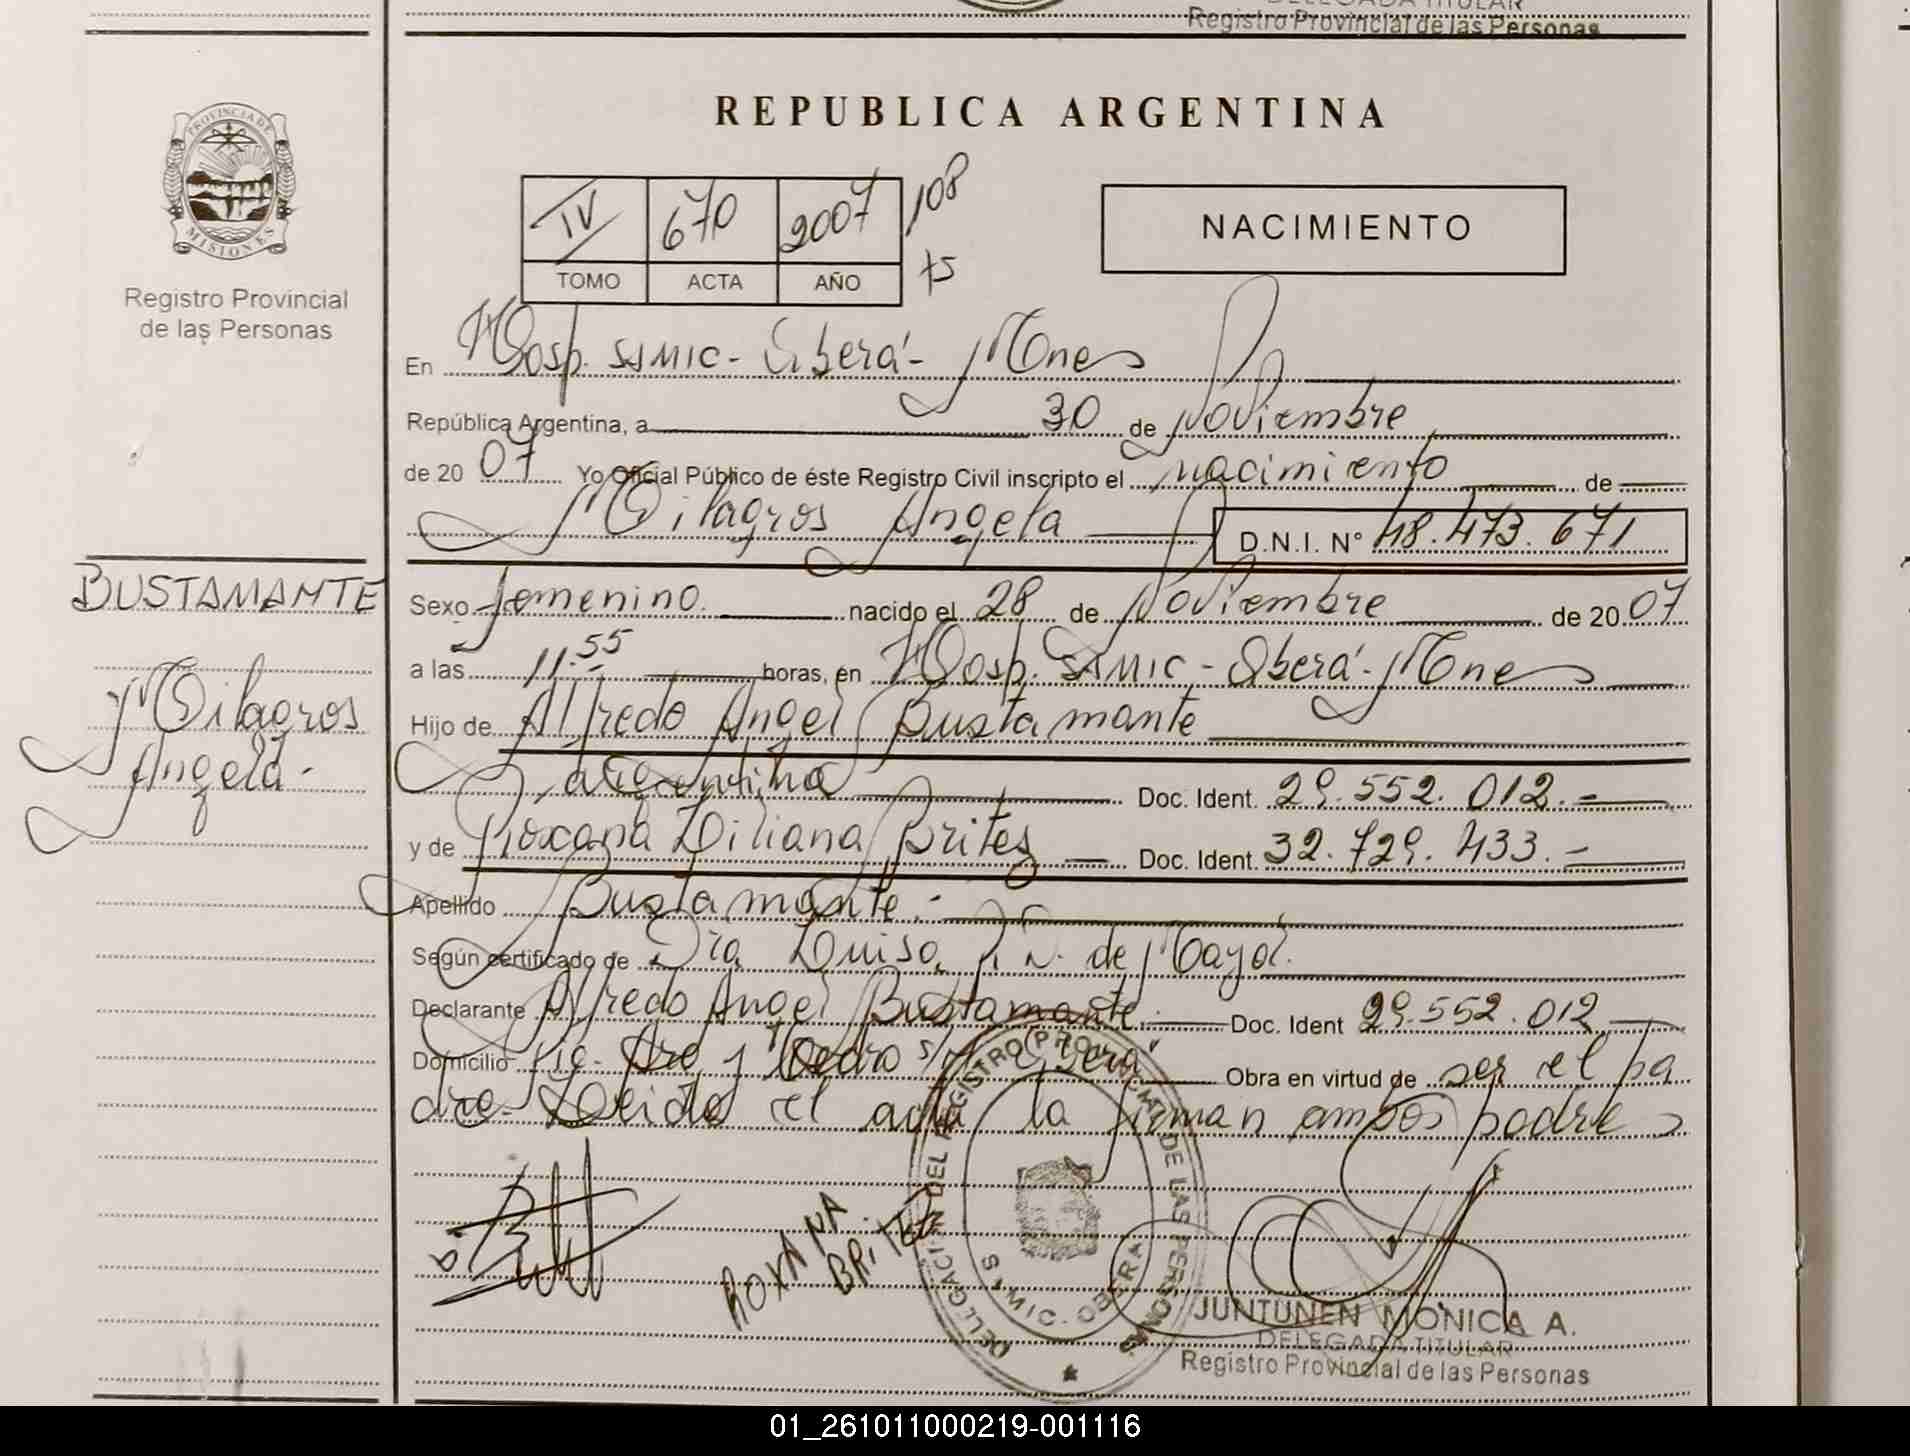 DELEGADA TITULAR
Registro Provincial de las Personas
PROVINCIA DE
MISIONES
Registro Provincial
de las Personas
REPUBLICA ARGENTINA
IV 670 2007 108
TOMO ACTA AÑO 75
NACIMIENTO
En Hosp. SAMIC - Oberá - Mnes
República Argentina, a 30 de Noviembre
de 20 07 Yo Oficial Público de éste Registro Civil inscripto el nacimiento de
Milagros Angela D.N.I. N° 48.473.671
BUSTAMANTE
Milagros
Angela -
Sexo femenino. nacido el 28 de Noviembre de 20 07
a las 11.55 horas, en Hosp. SAMIC - Oberá - Mnes
Hijo de Alfredo Angel Bustamante
argentina Doc. Ident. 29.552.012.-
y de Roxana Liliana Brites Doc. Ident. 32.729.433.-
Apellido Bustamante.-
Según certificado de Dra. Luisa N. de Mayol.
Declarante Alfredo Angel Bustamante. Doc. Ident 29.552.012
Domicilio Pedro Oberá Obra en virtud de ser el pa
dre. Leída el acta la firman ambos padres
ROXANA
BRITEZ
DELEGACION DEL REGISTRO PROVINCIAL DE LAS PERSONAS
SAMIC - OBERA
JUNTUNEN MONICA A.
DELEGADA TITULAR
Registro Provincial de las Personas
01_261011000219-001116